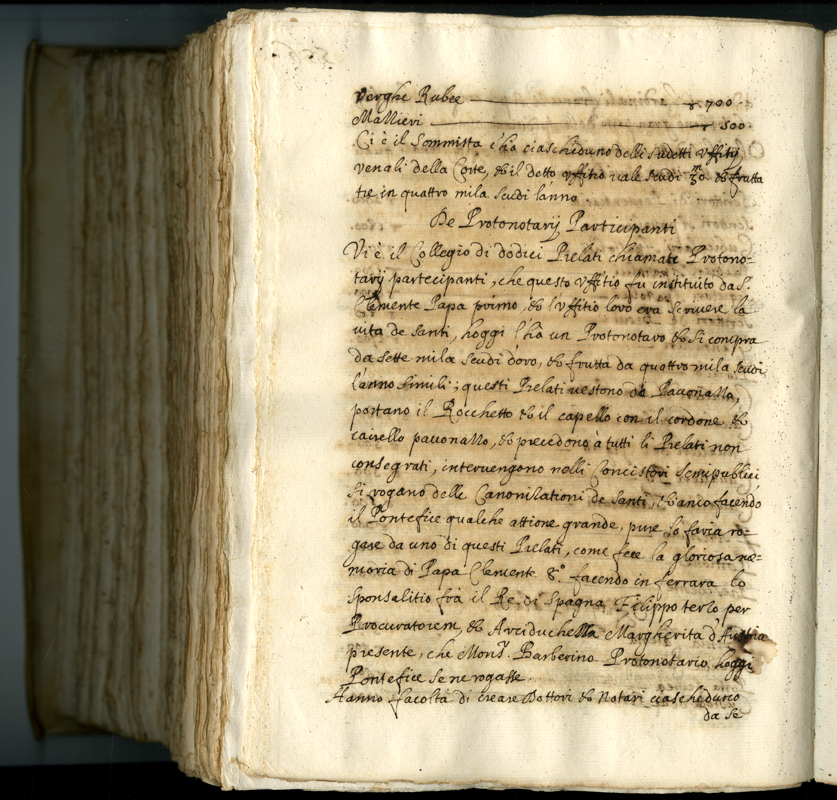 Verghe Rubee 700.
Mallieri 500.
Ci è il Sommista c'ha ciascheduno delli sudetti uffitij
venali della Corte, & il detto uffitio vale scudi 30. & frutta
tre in quattro mila scudi l'anno
De Protonotarij Participanti
Vi è il Collegio di dodici Prelati chiamati Protono-
tarij partecipanti, che questo uffitio fu instituito da S.
Clemente Papa primo, & l'uffitio loro era scrivere la
vita de santi, hoggi l'ha un Protonotaro & si compra
da sette mila scudi d'oro, & frutta da quattro mila scudi
l'anno simili; questi Prelati vestono di Pavonazzo,
portano il Rocchetto & il capello con il cordone &
cairello pavonazzo, & precedono à tutti li Prelati non
consegrati, intervengono nelli Concistori semipublici,
si rogano delle Canonizationi de Santi, & anco facendo
il Pontefice qualche attione grande, pure lo faria ro-
gare da uno di questi Prelati, come fece la gloriosa me-
moria di Papa Clemente 8.º facendo in ferrara lo
sponsalitio frà il Re di Spagna Filippo terzo per
Procuratorem, & Arciduchessa Margherita d'Austria
presente, che Mons.r Barberino Protonotario hoggi
Pontefice se ne rogasse.
Hanno facolta di creare Dottori & Notari ciascheduno
da se